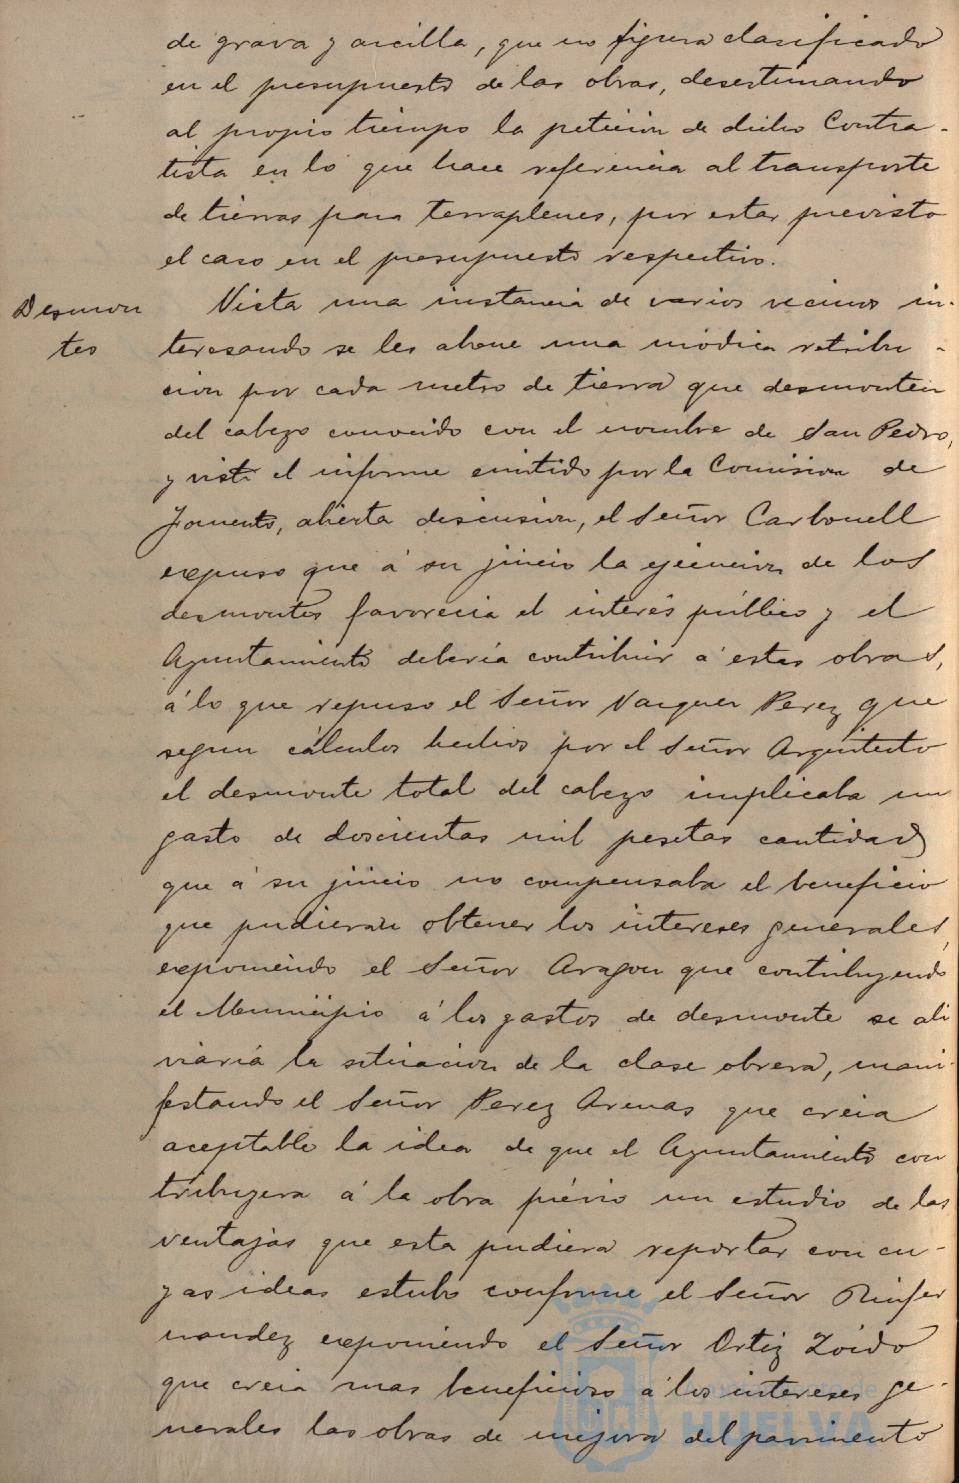 de grava y arcilla, que no figura clasificado
en el presupuesto de las obras, desestimando
al propio tiempo la petición de dicho Contra-
tista en lo que hace referencia al transporte
de tierras para terraplenes, por estar previsto
el caso en el presupuesto respectivo.
Desmon
tes
Vista una instancia de varios vecinos in-
teresando se les abone una módica retribu-
cion por cada metro de tierra que desmonten
del cabezo conocido con el nombre de San Pedro,
y visto el informe emitido por la Comision de
Fomento, abierta discusion, el Señor Carbonell
expuso que á su juicio la ejecucion de los
desmontes favorecia el interés público y el
Ayuntamiento debería contribuir á estas obras,
á lo que repuso el Señor Vazquez Perez que
segun cálculos hechos por el Señor Arquitecto
el desmonte total del cabezo implicaba un
gasto de doscientas mil pesetas cantidad
que á su juicio no compensaba el beneficio
que pudieran obtener los intereses generales,
exponiendo el Señor Aragon que contribuyendo
el Municipio á los gastos de desmonte se ali
viaria la situacion de la clase obrera, mani-
festando el Señor Perez Arenas que creia
aceptable la idea de que el Ayuntamiento con
tribuyera á la obra prévio un estudio de las
ventajas que esta pudiera reportar con cu-
yas ideas estubo conforme el Señor
nandez exponiendo el Señor Ortiz Zoido
que creia mas beneficioso á los intereses ge-
nerales las obras de mejora del pavimento
Ayuntamiento de
HUELVA